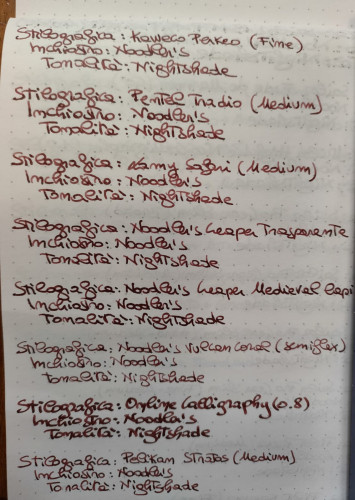 Stilografica: Kaweco Perkeo (Fine)
Inchiostro: Noodler's
Tonalità: Nightshade
Stilografica: Pentel Tradio (Medium)
Inchiostro: Noodler's
Tonalità: Nightshade
Stilografica: Lamy Safari (Medium)
Inchiostro: Noodler's
Tonalità: Nightshade
Stilografica: Noodler's Creaper Trasparente
Inchiostro: Noodler's
Tonalità: Nightshade
Stilografica: Noodler's Creaper Medieval Lapis
Inchiostro: Noodler's
Tonalità: Nightshade
Stilografica: Noodler's Vulcan Coral (semiflex)
Inchiostro: Noodler's
Tonalità: Nightshade
Stilografica: Online Calligraphy (0.8)
Inchiostro: Noodler's
Tonalità: Nightshade
Stilografica: Pelikan Stratos (Medium)
Inchiostro: Noodler's
Tonalità: Nightshade